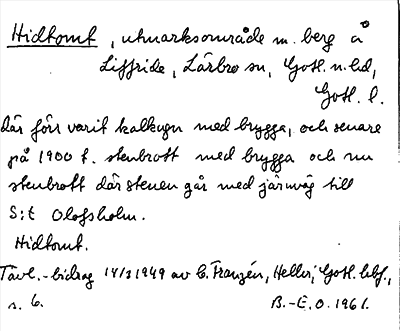 Hidtomt, utmarksområde m. berg å
Liffride, Lärbro sn, Gotl. n. hd,
Gotl. l.
Där förr varit kalkugn med brygga, och senare
på 1900 t. stenbrott med brygga och nu
stenbrott där stenen går med järnväg till
S:t Olofsholm.
Hidtomt.
Tävl.-bidrag 14/3 1949 av C. Franzén, Hellvi, Gotl.
s. 6. B.-E. O. 1961.